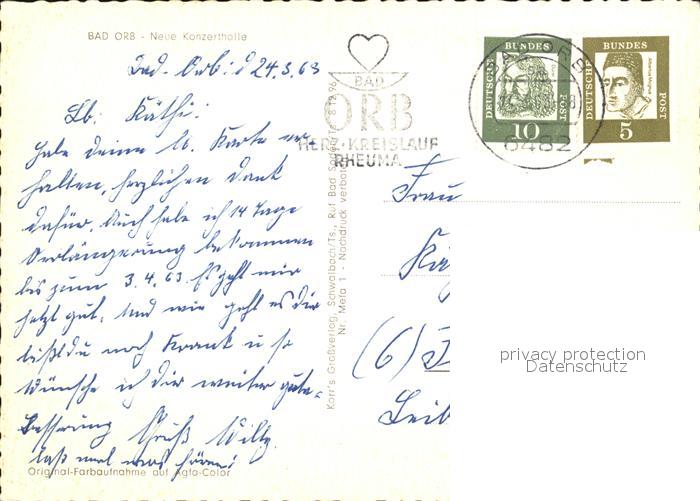 BAD ORB - Neue Konzerthalle
Bad-Orb: d 24.3.63
Lb. Käthi!
habe deine lb. Karte er-
halten, herzlichen Dank
dafür. Auch habe ich 14 Tage
Verlängerung bekommen
bis zum 3.4.63. Es geht mir
jetzt gut. Und wie geht es dir
bist du noch Krank u so
wünsche ich dir weiter gute-
Besserung Gruß Willy
laß mal was hören!
Original-Farbaufnahme auf Agfa-Color
Korr's Großverlag, Schwalbach/Ts., Ruf Bad Soden/Ts. 81296
Nr. Mefa 1 - Nachdruck verboten
BAD
ORB
HERZ-KREISLAUF
RHEUMA
6482
DEUTSCHE BUNDES POST
10
DEUTSCHE BUNDES POST
Albertus Magnus
5
Frau
(6)
privacy protection
Datenschutz